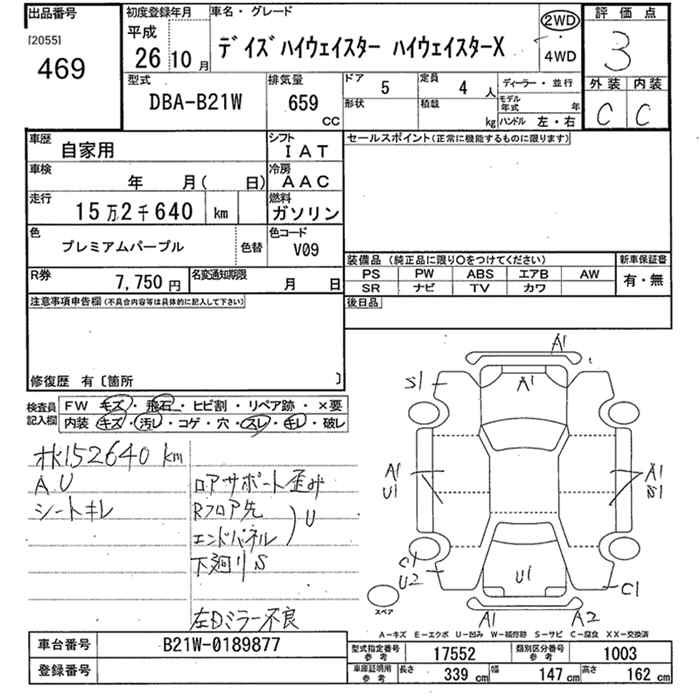 出品番号
[2055]
469
初度登録年月
平成
26 10 月
車名・グレード
デイズハイウェイスター ハイウェイスターX
2WD
4WD
評価点
3
外装 内装
C C
型式
DBA-B21W
排気量
659
CC
ドア 5
形状
定員 4 人
積載 kg
ディーラー・並行
モデル年式 年
ハンドル 左・右
車歴
自家用
シフト
IAT
車検
年 月( 日)
冷房
AAC
走行
15万2千640 km
燃料
ガソリン
色
プレミアムパープル
色替
色コード
V09
R券
7,750 円
名変通知期限
月 日
セールスポイント(正常に機能するものに限ります)
装備品(純正品に限り○をつけてください)
PS PW ABS エアB AW
SR ナビ TV カワ
新車保証書
有・無
後日品
注意事項申告欄(不具合内容等は具体的に記入して下さい)
修復歴 有〔箇所 〕
検査員記入欄
FW キズ・飛石・ヒビ割・リペア跡・×要
内装・キズ・汚レ・コゲ・穴・スレ・キレ・破レ
152640 km
A.U
シートキレ
ロアサポート歪み
Rフロア先
エンドパネル
U
下廻りS
左Dミラー不良
A1
S1
A1
A1
U1
A1
S1
C1
U2
U1
C1
A1
A2
スペア
A-キズ E-エクボ U-凹み W-補修跡 S-サビ C-腐食 XX-交換済
車台番号
B21W-0189877
登録番号
型式指定番号
参考
17552
類別区分番号
参考
1003
車庫証明用
参考
長さ 339 cm
幅 147 cm
高さ 162 cm